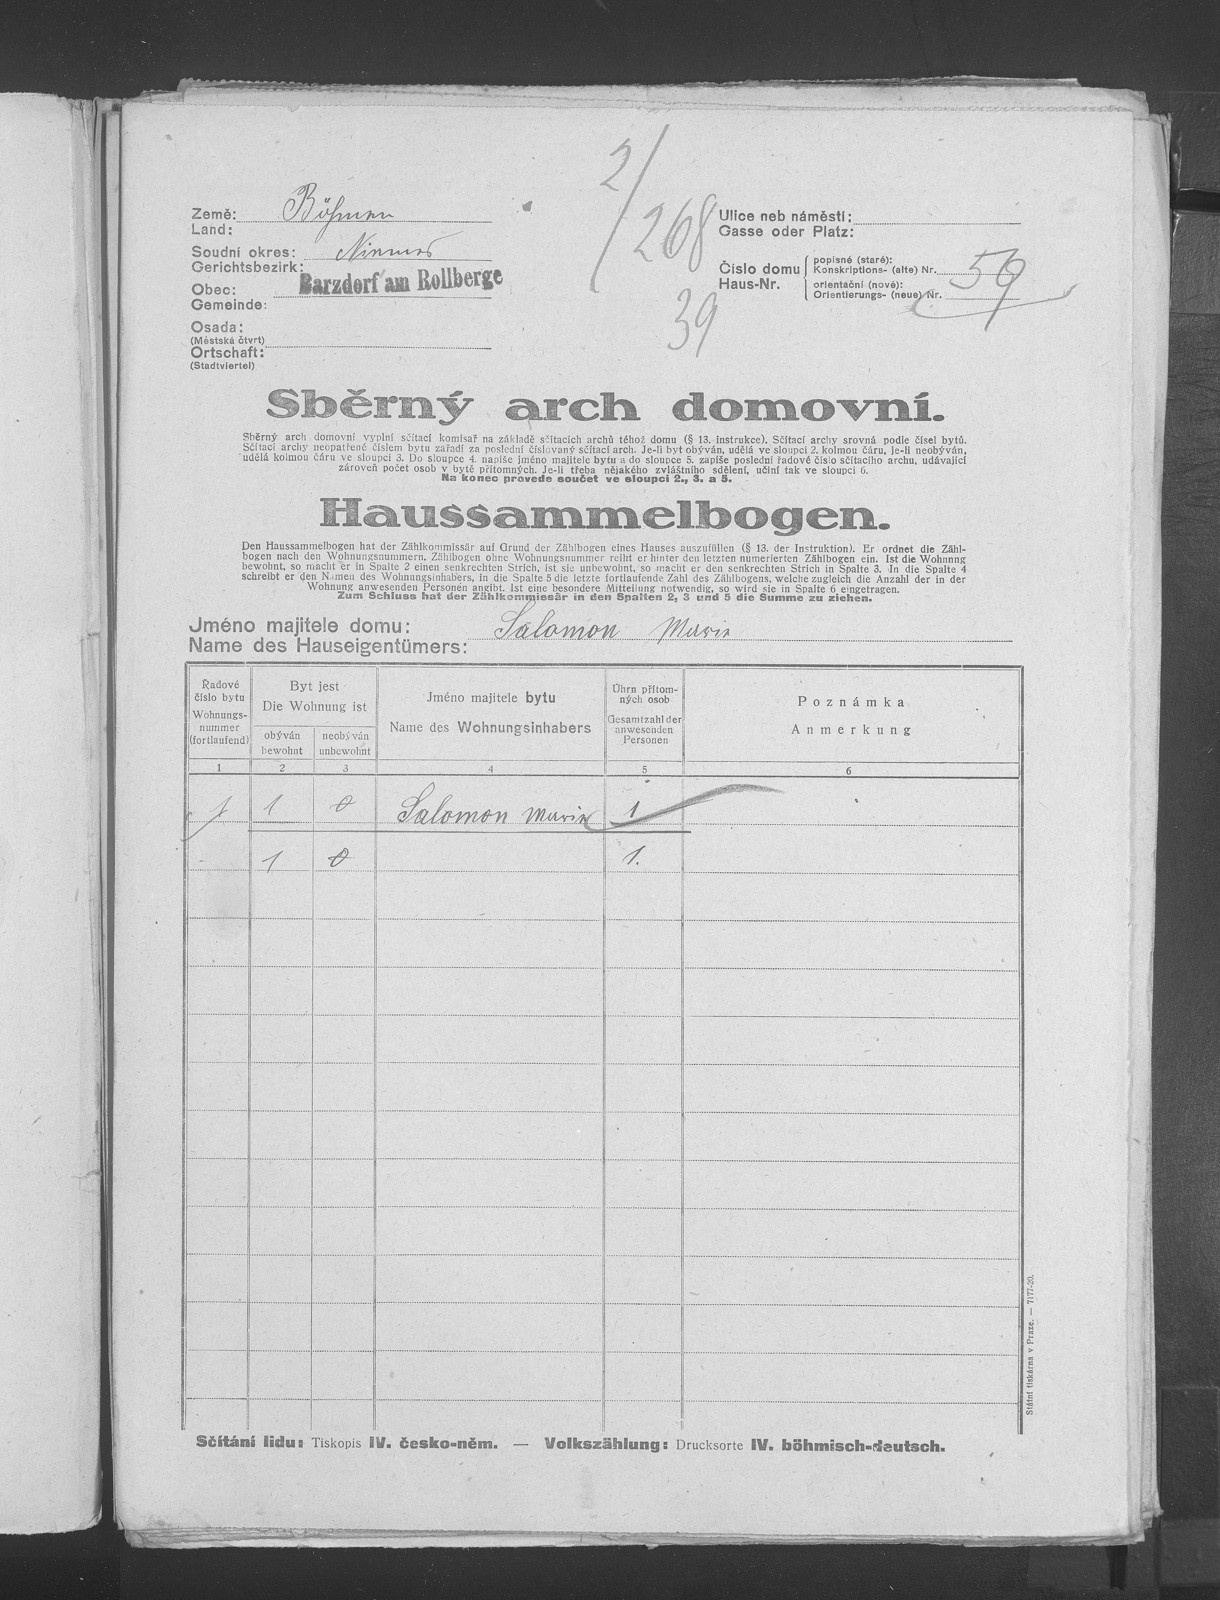 2/268
39
Země: Böhmen
Land:
Soudní okres: Niemes
Gerichtsbezirk:
Obec: Barzdorf am Rollberge
Gemeinde:
Osada:
(Městská čtvrt)
Ortschaft:
(Stadtviertel)
Ulice neb náměstí:
Gasse oder Platz:
Číslo domu
Haus-Nr.
popisné (staré):
Konskriptions- (alte) Nr. 59
orientační (nové):
Orientierungs- (neue) Nr.
Sběrný arch domovní.
Sběrný arch domovní vyplní sčítací komisař na základě sčítacích archů téhož domu (§ 13. instrukce). Sčítací archy srovná podle čísel bytů.
Sčítací archy neopatřené číslem bytu zařadí za poslední číslovaný sčítací arch. Je-li byt obýván, udělá ve sloupci 2. kolmou čáru, je-li neobýván,
udělá kolmou čáru ve sloupci 3. Do sloupce 4. napíše jméno majitele bytu a do sloupce 5. zapíše poslední řadové číslo sčítacího archu, udávající
zároveň počet osob v bytě přítomných. Je-li třeba nějakého zvláštního sdělení, učiní tak ve sloupci 6.
Na konec provede součet ve sloupci 2., 3. a 5.
Haussammelbogen.
Den Haussammelbogen hat der Zählkommissär auf Grund der Zählbogen eines Hauses auszufüllen (§ 13. der Instruktion). Er ordnet die Zähl-
bogen nach den Wohnungsnummern. Zählbogen ohne Wohnungsnummer reiht er hinter den letzten numerierten Zählbogen ein. Ist die Wohnung
bewohnt, so macht er in Spalte 2 einen senkrechten Strich, ist sie unbewohnt, so macht er den senkrechten Strich in Spalte 3. In die Spalte 4
schreibt er den Namen des Wohnungsinhabers, in die Spalte 5 die letzte fortlaufende Zahl des Zählbogens, welche zugleich die Anzahl der in der
Wohnung anwesenden Personen angibt. Ist eine besondere Mitteilung notwendig, so wird sie in Spalte 6 eingetragen.
Zum Schluss hat der Zählkommissär in den Spalten 2, 3 und 5 die Summe zu ziehen.
Jméno majitele domu: Salomon Marie
Name des Hauseigentümers:
Řadové
číslo bytu
Wohnungs-
nummer
(fortlaufend)
Byt jest
Die Wohnung ist
obýván
bewohnt
neobýván
unbewohnt
Jméno majitele bytu
Name des Wohnungsinhabers
Úhrn přítom-
ných osob
Gesamtzahl der
anwesenden
Personen
Poznámka
Anmerkung
1 2 3 4 5 6
1 1 0 Salomon Marie 1
1 0 1.
Sčítání lidu: Tiskopis IV. česko-něm. — Volkszählung: Drucksorte IV. böhmisch-deutsch.
Státní tiskárna v Praze. — 7177-20.